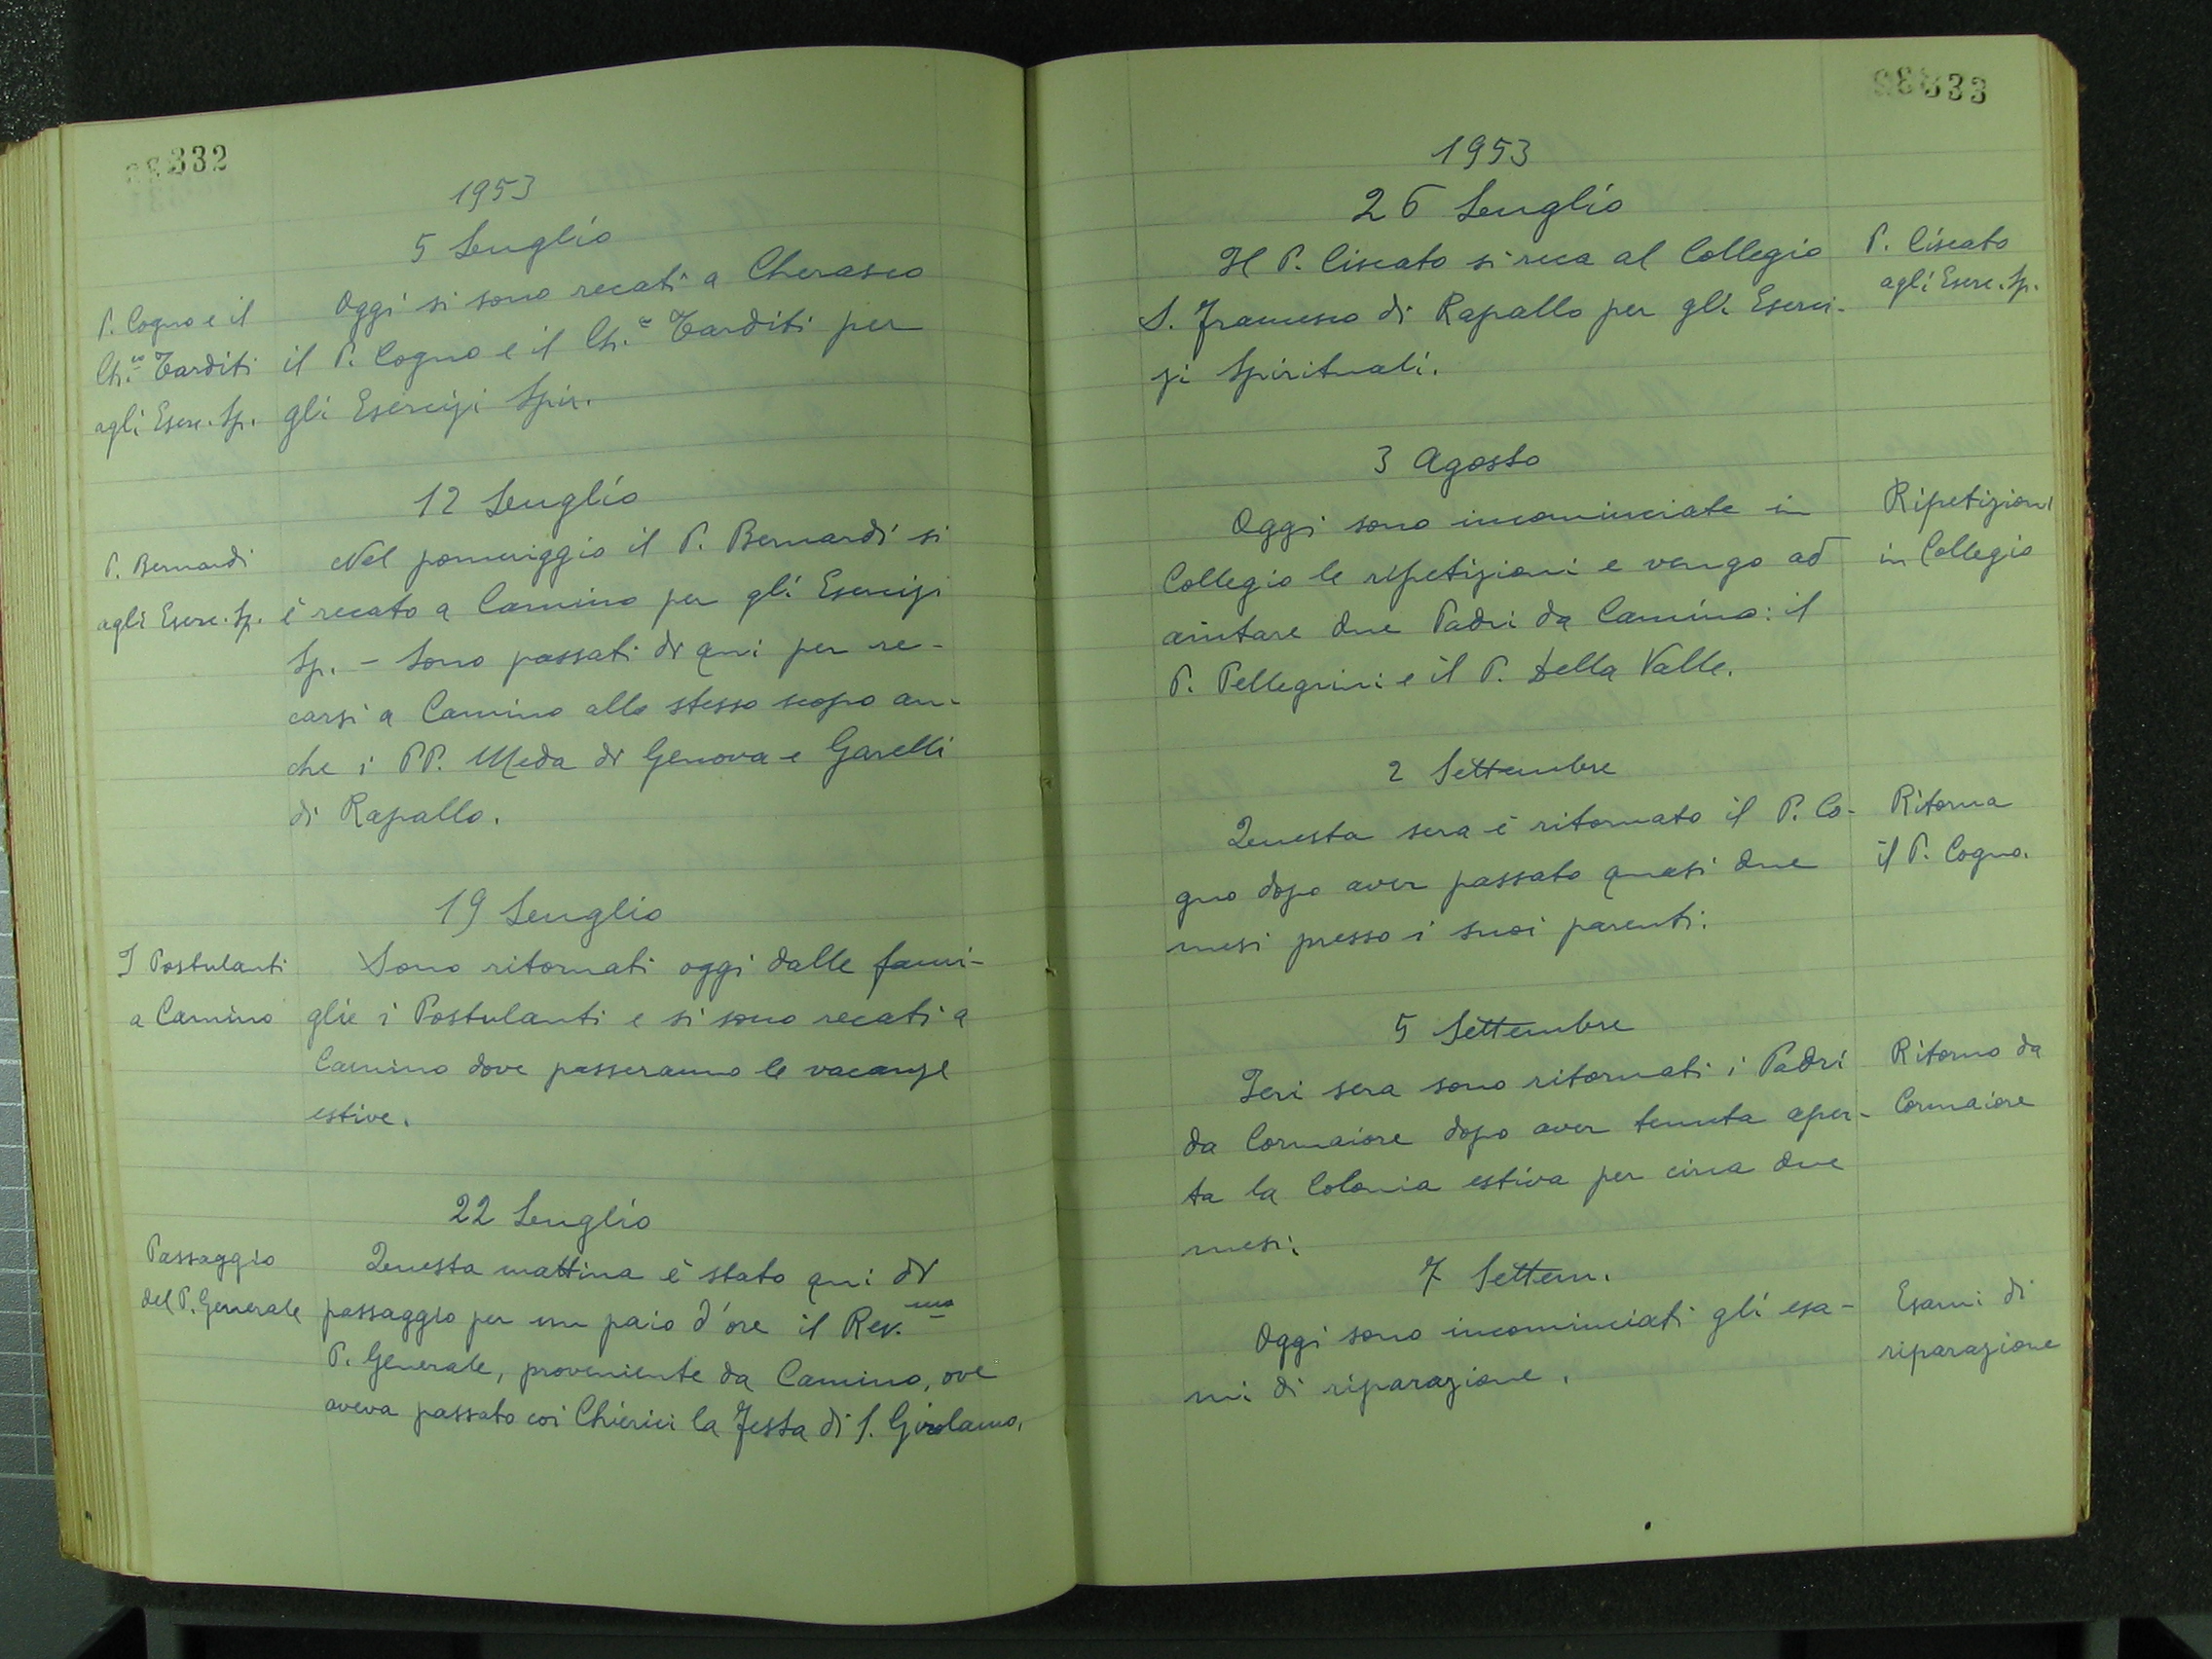 332
1953
5 Luuglio
P. Cogno e il
Ch.co Tarditi
agli Eserc. Sp.
Oggi si sono recati a Cherasco
il P. Cogno e il Ch.co Tarditi per
gli Esercizi Spir.
12 Luuglio
P. Bernardi
agli Eserc. Sp.
Nel pomeriggio il P. Bernardi si
è recato a Camino per gli Esercizi
Sp. - Sono passati di qui per re-
carsi a Camino allo stesso scopo an-
che i PP. Meda di Genova e Garelli
di Rapallo.
19 Luuglio
I Postulanti
a Camino
Sono ritornati oggi dalle fami-
glie i Postulanti e si sono recati a
Camino dove passeranno le vacanze
estive.
22 Luuglio
Passaggio
del P. Generale
Questa mattina è stato qui di
passaggio per un paio d'ore il Rev.mo
P. Generale, proveniente da Camino, ove
aveva passato coi Chierici la Festa di S. Girolamo.
333
1953
26 Luuglio
Il P. Ciscato si reca al Collegio
S. Francesco di Rapallo per gli Eserci-
zi Spirituali.
P. Ciscato
agli Eserc. Sp.
3 Agosto
Oggi sono incominciate in
Collegio le ripetizioni e vengo ad
aiutare due Padri da Camino: il
P. Pellegrini e il P. Della Valle.
Ripetizioni
in Collegio
2 Settembre
Questa sera è ritornato il P. Co-
gno dopo aver passato quasi due
mesi presso i suoi parenti.
Ritorna
il P. Cogno.
5 Settembre
Ieri sera sono ritornati i Padri
da Cormaiore dopo aver tenuta aper-
ta la Colonia estiva per circa due
mesi.
Ritorno da
Cormaiore
7 Settem.
Oggi sono incominciati gli esa-
mi di riparazione.
Esami di
riparazione